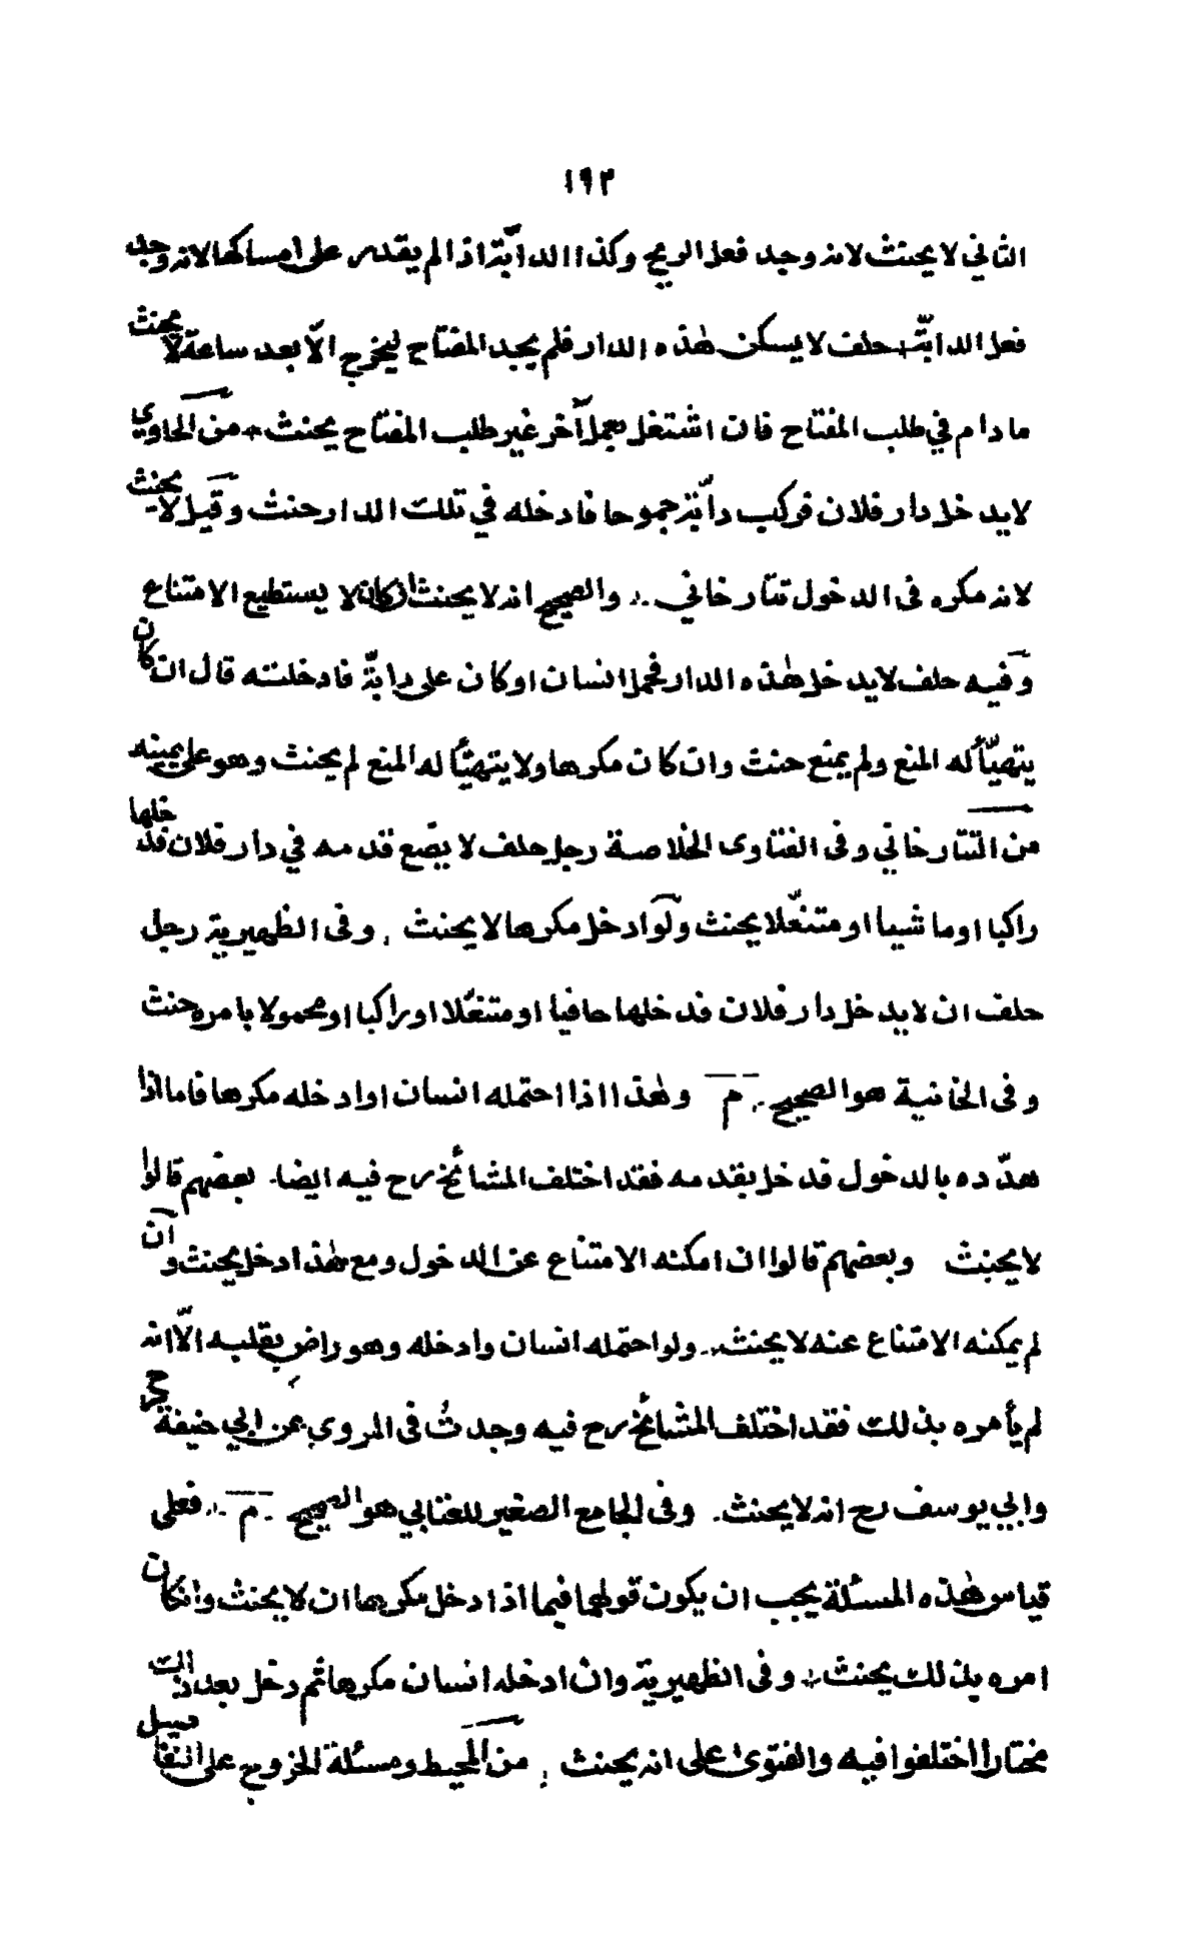 ١٩٣
الثاني لا يحنث لانه وجد فعل الريح وكذا الدابّة اذا لم يقدر على امساكها لانه وجد
فعل الدابّة حلف لا يسكن هٰذه الدار فلم يجد المفتاح ليخرج الّا بعد ساعة لا يحنث
ما دام في طلب المفتاح فان اشتغل بعمل آخر غير طلب المفتاح يحنث من الحاوي
لا يدخل دار فلان فركب دابّة جموحا فادخله في تلك الدار حنث وقيل لا يحنث
لانه مكره فى الدخول تتارخاني والصحيح انه لا يحنث ان كان لا يستطيع الامتناع
وفيه حلف لا يدخل هٰذه الدار فحمل انسان او كان على دابّة فادخلته قال ان كان
يتهيّأ له المنع ولم يمنع حنث وان كان مكرها ولا يتهيّأ له المنع لم يحنث وهو على يمينه
من التتارخاني وفى الفتاوى الخلاصة رجل حلف لا يضع قدمه في دار فلان فدخلها
راكبا او ماشيا او متنعّلا يحنث ولو ادخل مكرها لا يحنث وفى الظهيرية رجل
حلف ان لا يدخل دار فلان فدخلها حافيا او متنعّلا او راكبا او محمولا بامره حنث
وفى الخانية هو الصحيح م وهٰذا اذا احتمله انسان او ادخله مكرها فاما اذا
هدّده بالدخول فدخل بقدمه فقد اختلف المشائخ رح فيه ايضا بعضهم قالوا
لا يحنث وبعضهم قالوا ان امكنه الامتناع عن الدخول ومع هٰذا دخل يحنث وان
لم يمكنه الامتناع عنه لا يحنث ولو احتمله انسان وادخله وهو راضٍ بقلبه الّا انه
لم يأمره بذلك فقد اختلف المشائخ رح فيه وجدتُ فى المروي عن ابي حنيفة رح
وابي يوسف رح انه لا يحنث وفى الجامع الصغير للعتابي هو الصحيح م فعلى
قياس هٰذه المسئلة يجب ان يكون قولهما فيما اذا دخل مكرها ان لا يحنث وان كان
امره بذلك يحنث وفى الظهيرية وان ادخله انسان مكرها ثم دخل بعد ذلك
مختاراً اختلفوا فيه والفتوى على انه يحنث من المحيط ومسئلة الخروج على